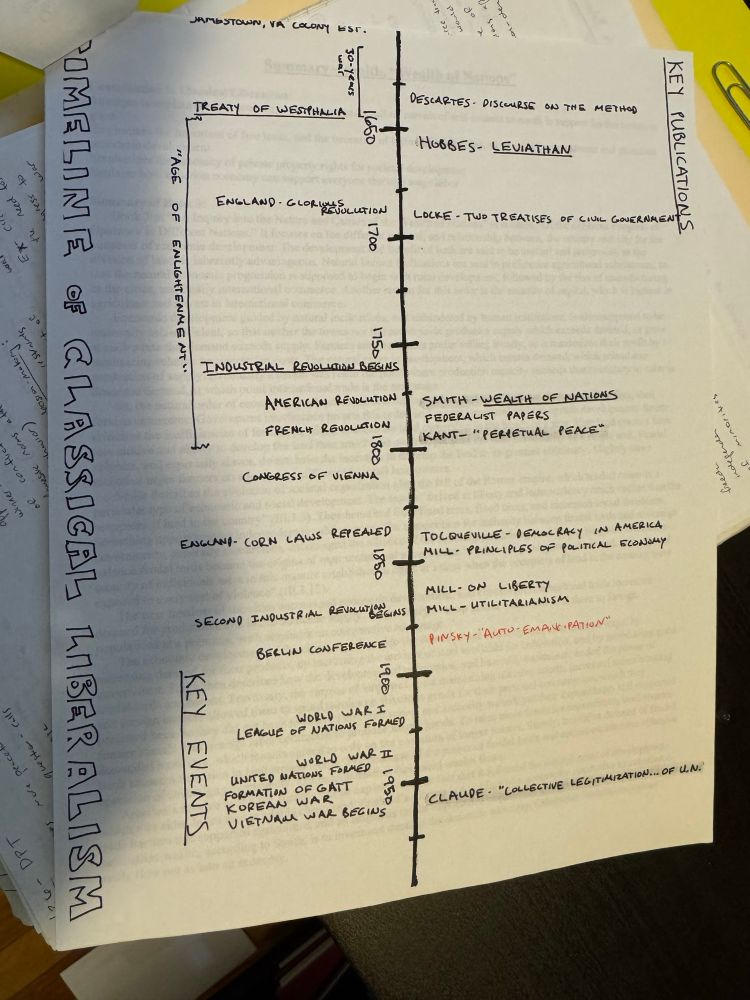 TIMELINE OF CLASSICAL LIBERALISM
KEY PUBLICATIONS
KEY EVENTS
JAMESTOWN, VA COLONY EST.
30-YEARS
WAR
DESCARTES- DISCOURSE ON THE METHOD
TREATY OF WESTPHALIA
1650
HOBBES- LEVIATHAN
"AGE OF ENLIGHTENMENT"
ENGLAND- GLORIOUS
REVOLUTION
LOCKE - TWO TREATISES OF CIVIL GOVERNMENT
1700
1750
INDUSTRIAL REVOLUTION BEGINS
AMERICAN REVOLUTION
SMITH - WEALTH OF NATIONS
FEDERALIST PAPERS
FRENCH REVOLUTION
KANT- "PERPETUAL PEACE"
1800
CONGRESS OF VIENNA
ENGLAND- CORN LAWS REPEALED
TOCQUEVILLE - DEMOCRACY IN AMERICA
MILL- PRINCIPLES OF POLITICAL ECONOMY
1850
MILL- ON LIBERTY
MILL- UTILITARIANISM
SECOND INDUSTRIAL REVOLUTION
BEGINS
PINSKY- "AUTO-EMANCIPATION"
BERLIN CONFERENCE
1900
WORLD WAR I
LEAGUE OF NATIONS FORMED
WORLD WAR II
UNITED NATIONS FORMED
FORMATION OF GATT
KOREAN WAR
VIETNAM WAR BEGINS
1950
CLAUDE- "COLLECTIVE LEGITIMIZATION... OF U.N.